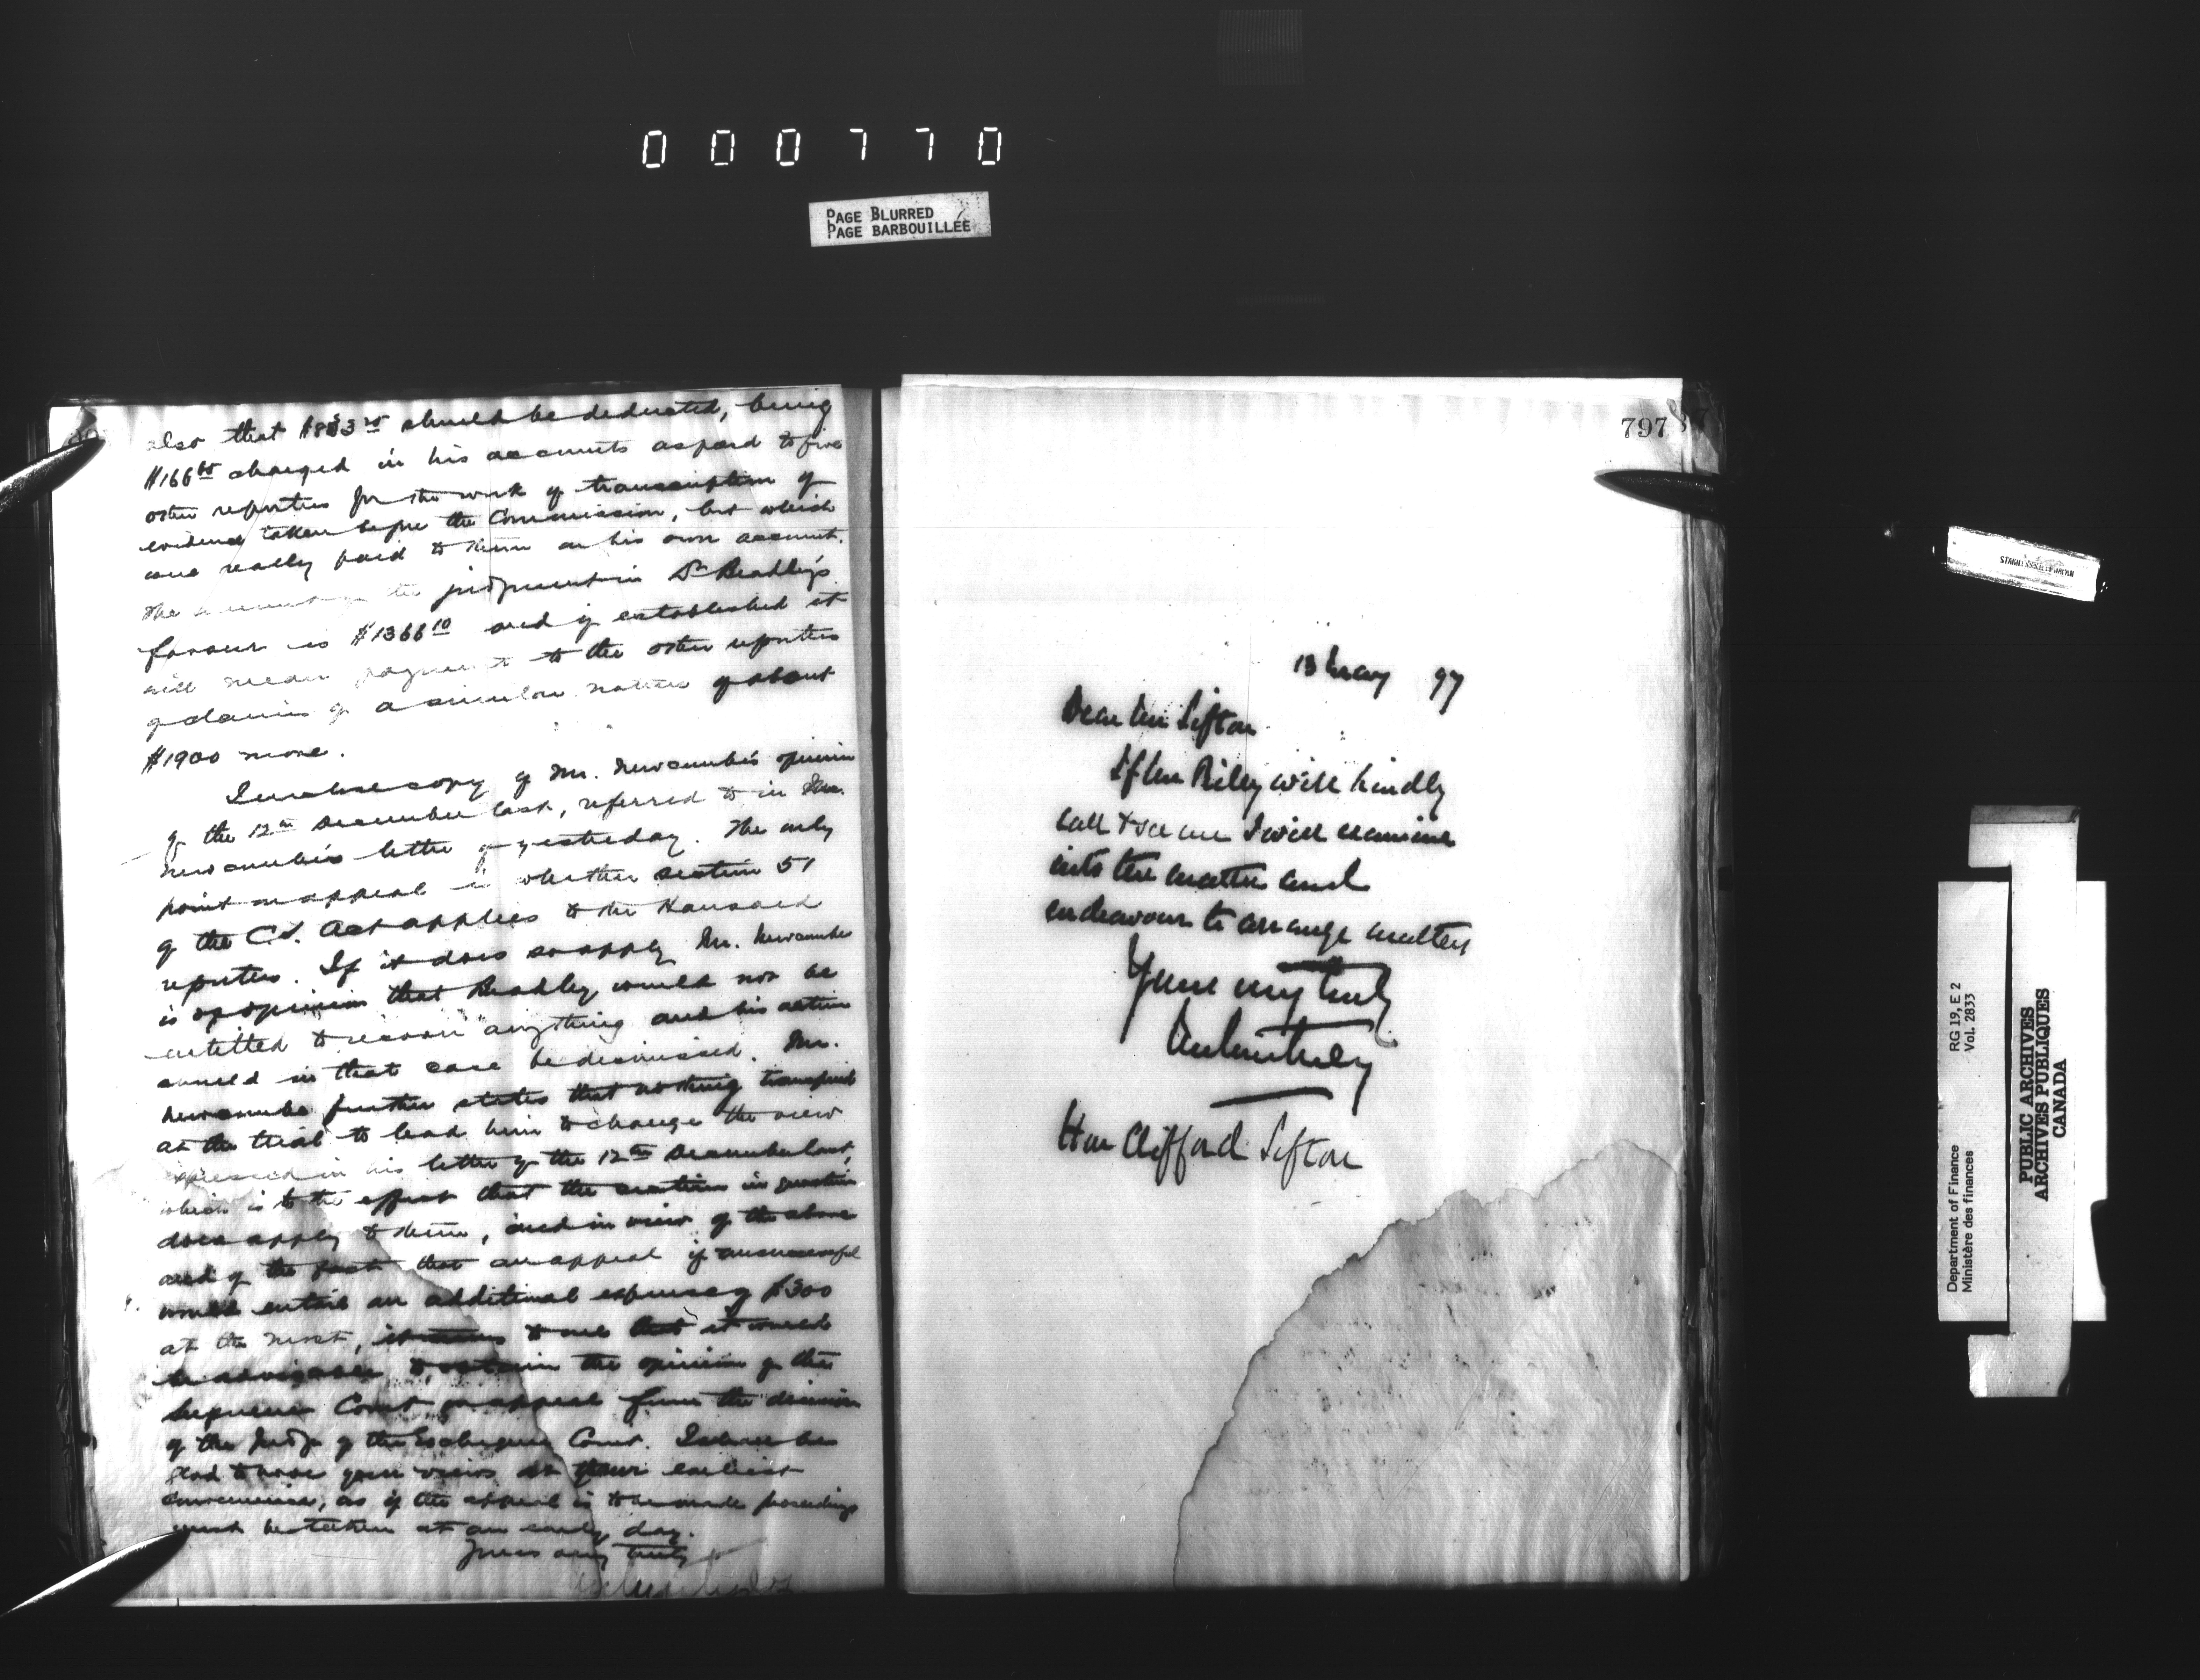 000770
PAGE BLURRED
PAGE BARBOUILLÉE
also that $833 should be deducted, being
$166 charged in his accounts as paid to five
other reporters for the work of transcription of
evidence taken before the Commission, but which
were really paid to them on his own account.
The the judgment in Mr Bradley's
favour is $1366 10 and if established it
will mean payment to the other reporters
of claims of a similar nature of about
$1900 more.
I enclose copy of Mr. Newcombe's opinion
of the 12th December last, referred to in Mr.
Newcombe's letter of yesterday. The only
point on appeal is whether section 51
of the C.S. Act applies to the Hansard
reporters. If it does so apply Mr. Newcombe
is of opinion that Bradley would not be
entitled to recover anything and his action
would in that case be dismissed. Mr.
Newcombe further states that nothing transpired
at the trial to lead him to change the view
expressed in his letter of the 12th December last,
which is to the effect that the section in question
does apply to them, and in view of the above
and of the fact that an appeal if unsuccessful
would entail an additional expense of $300
at the most, it seems to me that it would
be advisable to obtain the opinion of the
Supreme Court on appeal from the decision
of the Judge of the Exchequer Court. I should be
glad to have your views at your earliest
convenience, as if the appeal is to be made proceedings
must be taken at an early day.
Yours very truly
797
13 May 97
Dear Mr Sifton
If Mr Riley will kindly
call & see me I will examine
into the matter and
endeavour to arrange matters
Yours very truly
Hon Clifford Sifton
STAINLESS STEEL JAPAN
Department of Finance
Ministère des finances
RG 19, E 2
Vol. 2833
PUBLIC ARCHIVES
ARCHIVES PUBLIQUES
CANADA